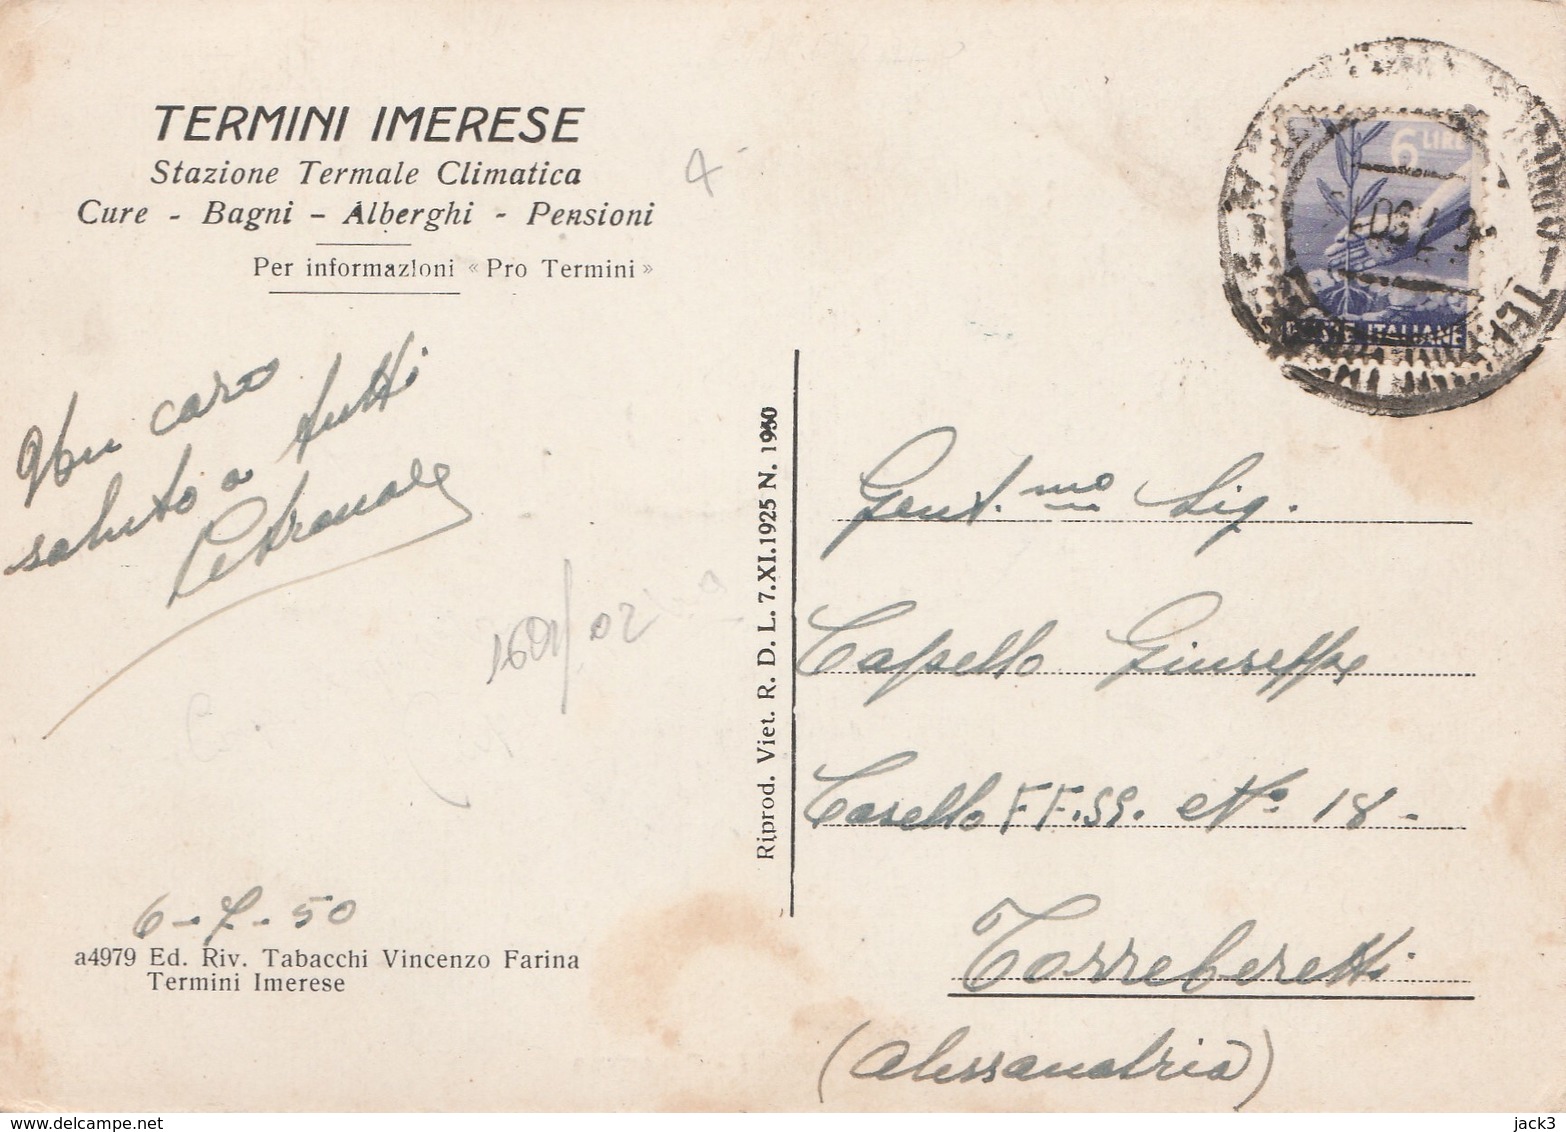 TERMINI IMERESE
Stazione Termale Climatica
Cure - Bagni - Alberghi - Pensioni
Per informazioni « Pro Termini »
4
6 LIRE
POSTE ITALIANE
Un caro
saluto a tutti
1601/02
6-7-50
a4979 Ed. Riv. Tabacchi Vincenzo Farina
Termini Imerese
Riprod. Viet. R. D. L. 7.XI.1925 N. 1950
Gent.mo Sig.
Capello Giuseppe
Casello FF.SS. No. 18-
Torreberetti
(Alessandria)
delcampe.net
jack3